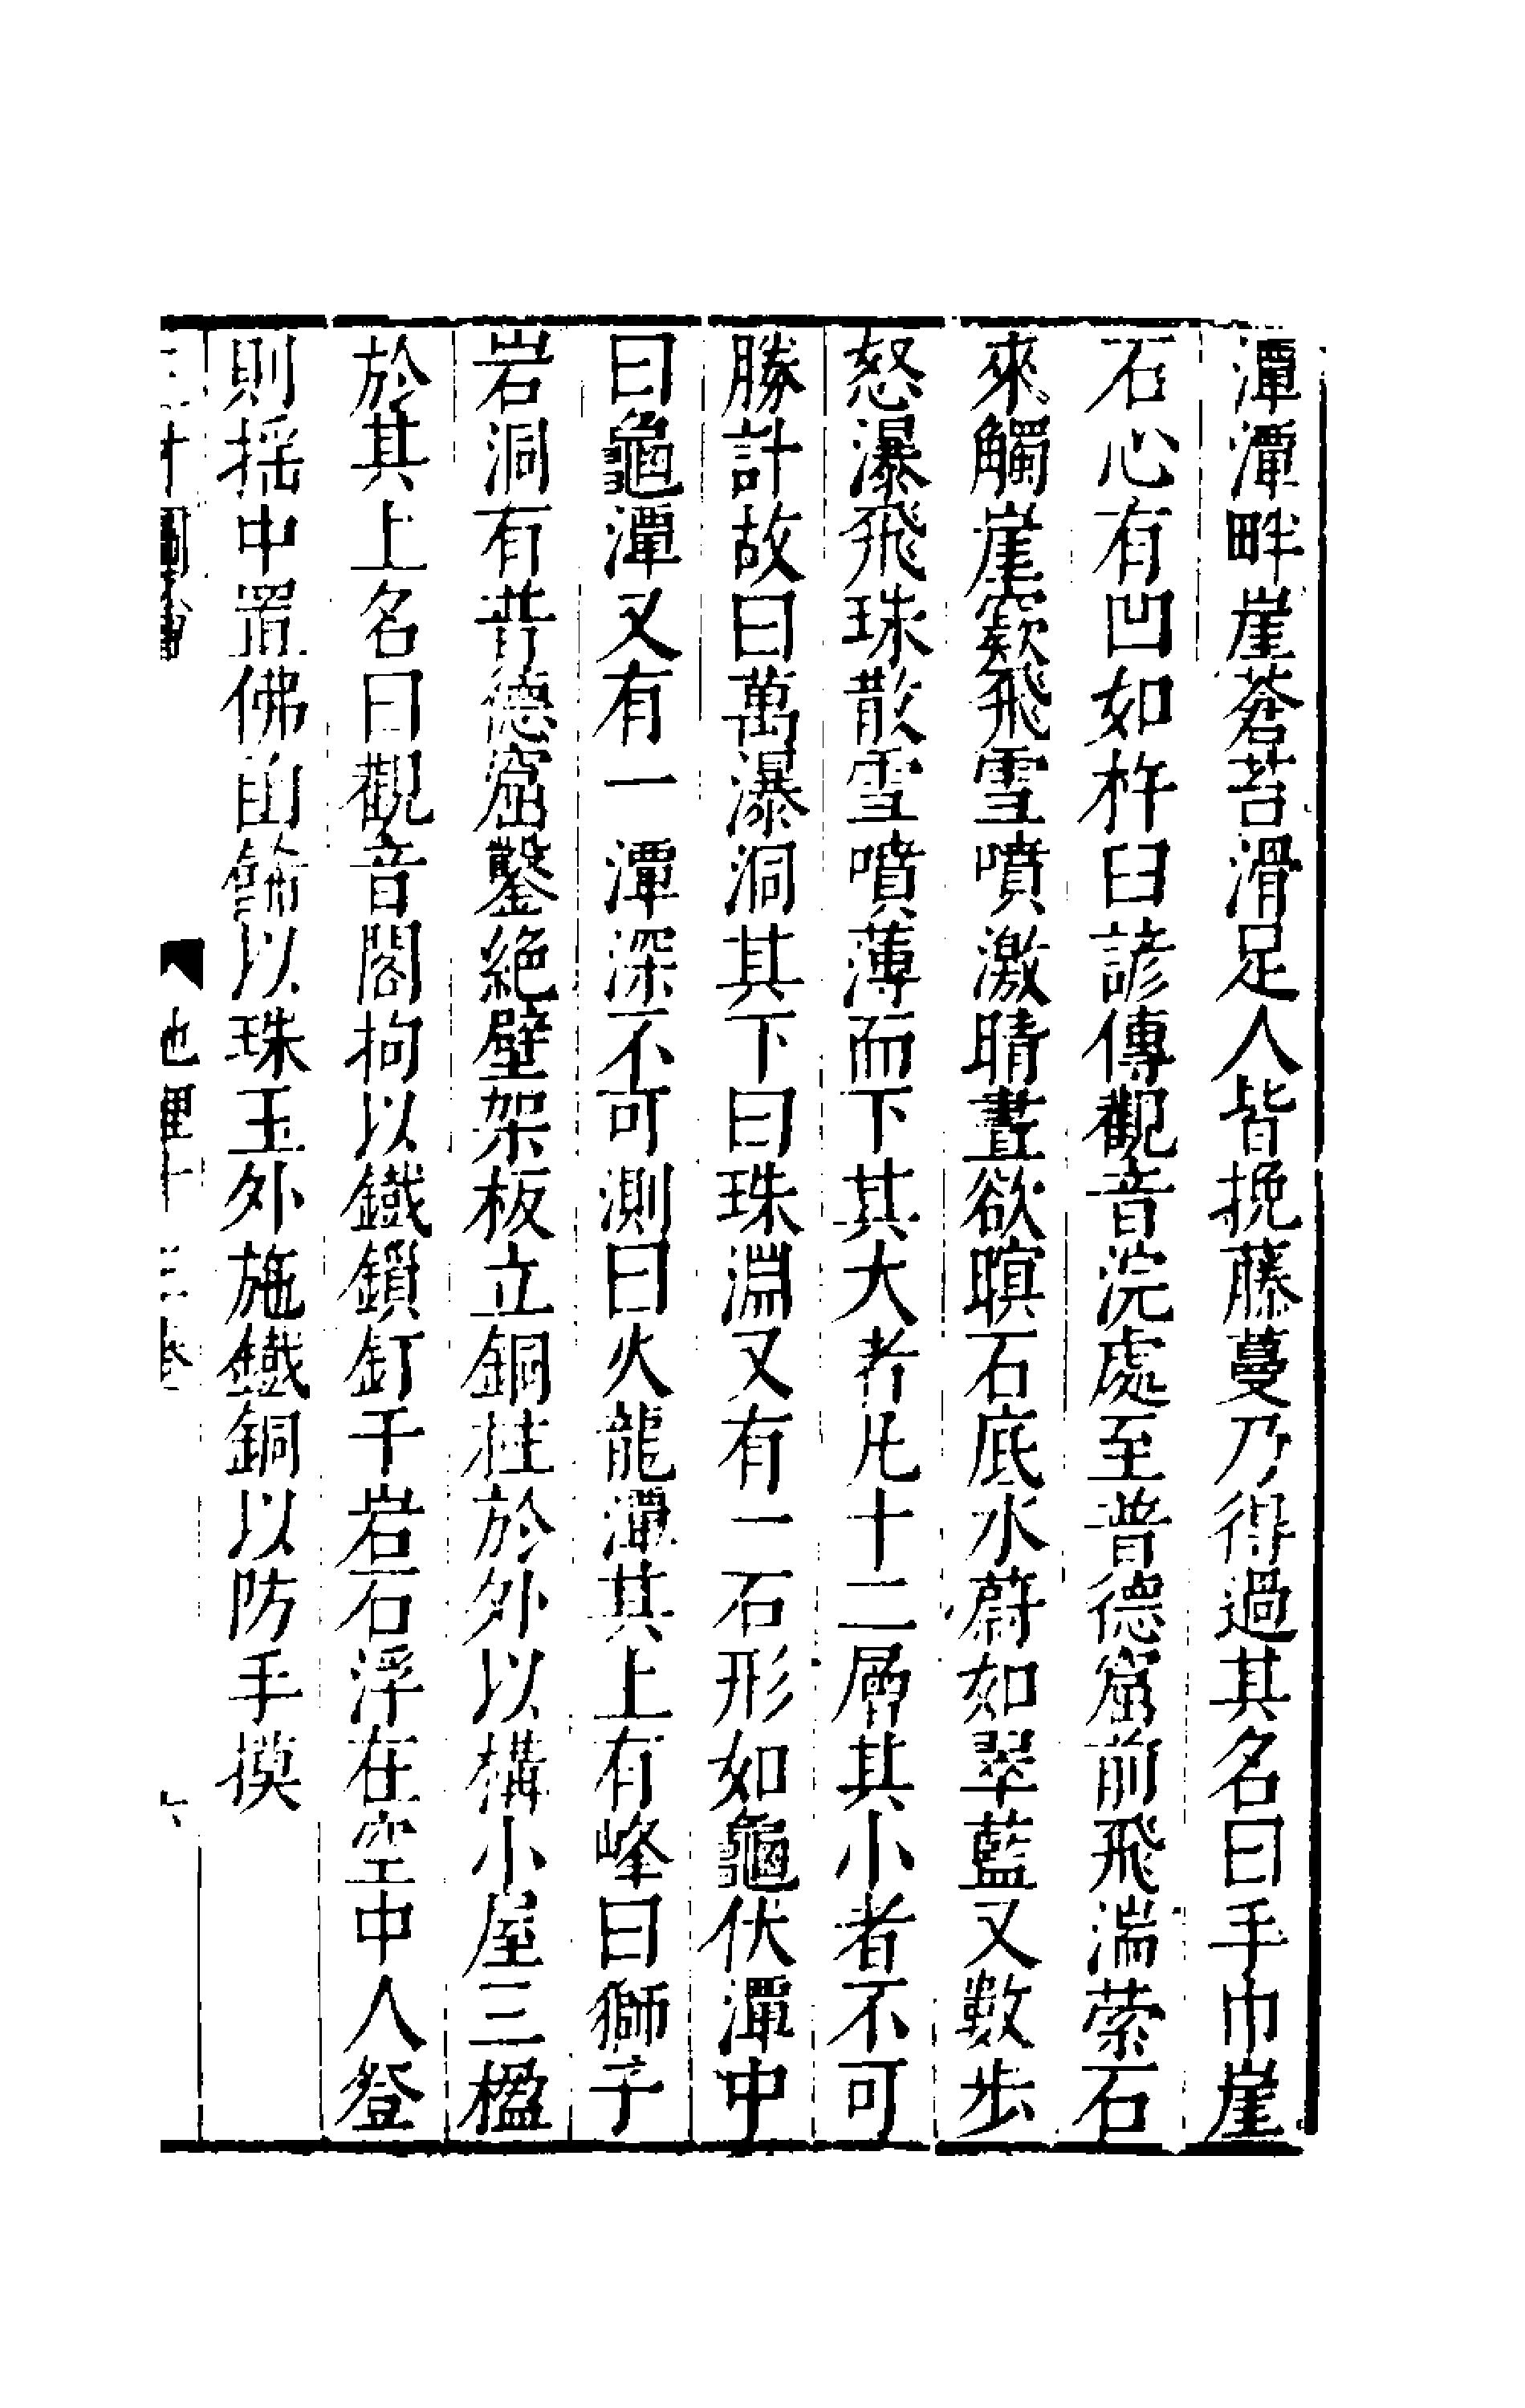 潭潭畔崖蒼苔滑足人皆挽藤蔓乃得過其名曰手巾崖
石心有凹如杵臼諺傳觀音浣處至普德窟前飛湍縈石
來觸崖窾飛雪噴激晴晝欲暝石底水蔚如翠藍又數步
怒瀑飛珠散雪噴薄而下其大者凡十二層其小者不可
勝計故曰萬瀑洞其下曰珠淵又有一石形如龜伏潭中
曰龜潭又有一潭深不可測曰火龍潭其上有峰曰獅子
岩洞有普德窟鑿絕壁架板立銅柱於外以構小屋三楹
於其上名曰觀音閣拘以鐵鎖釘于岩石浮在空中人登
則搖中置佛函飾以珠玉外施鐵銅以防手摸
地理十三卷